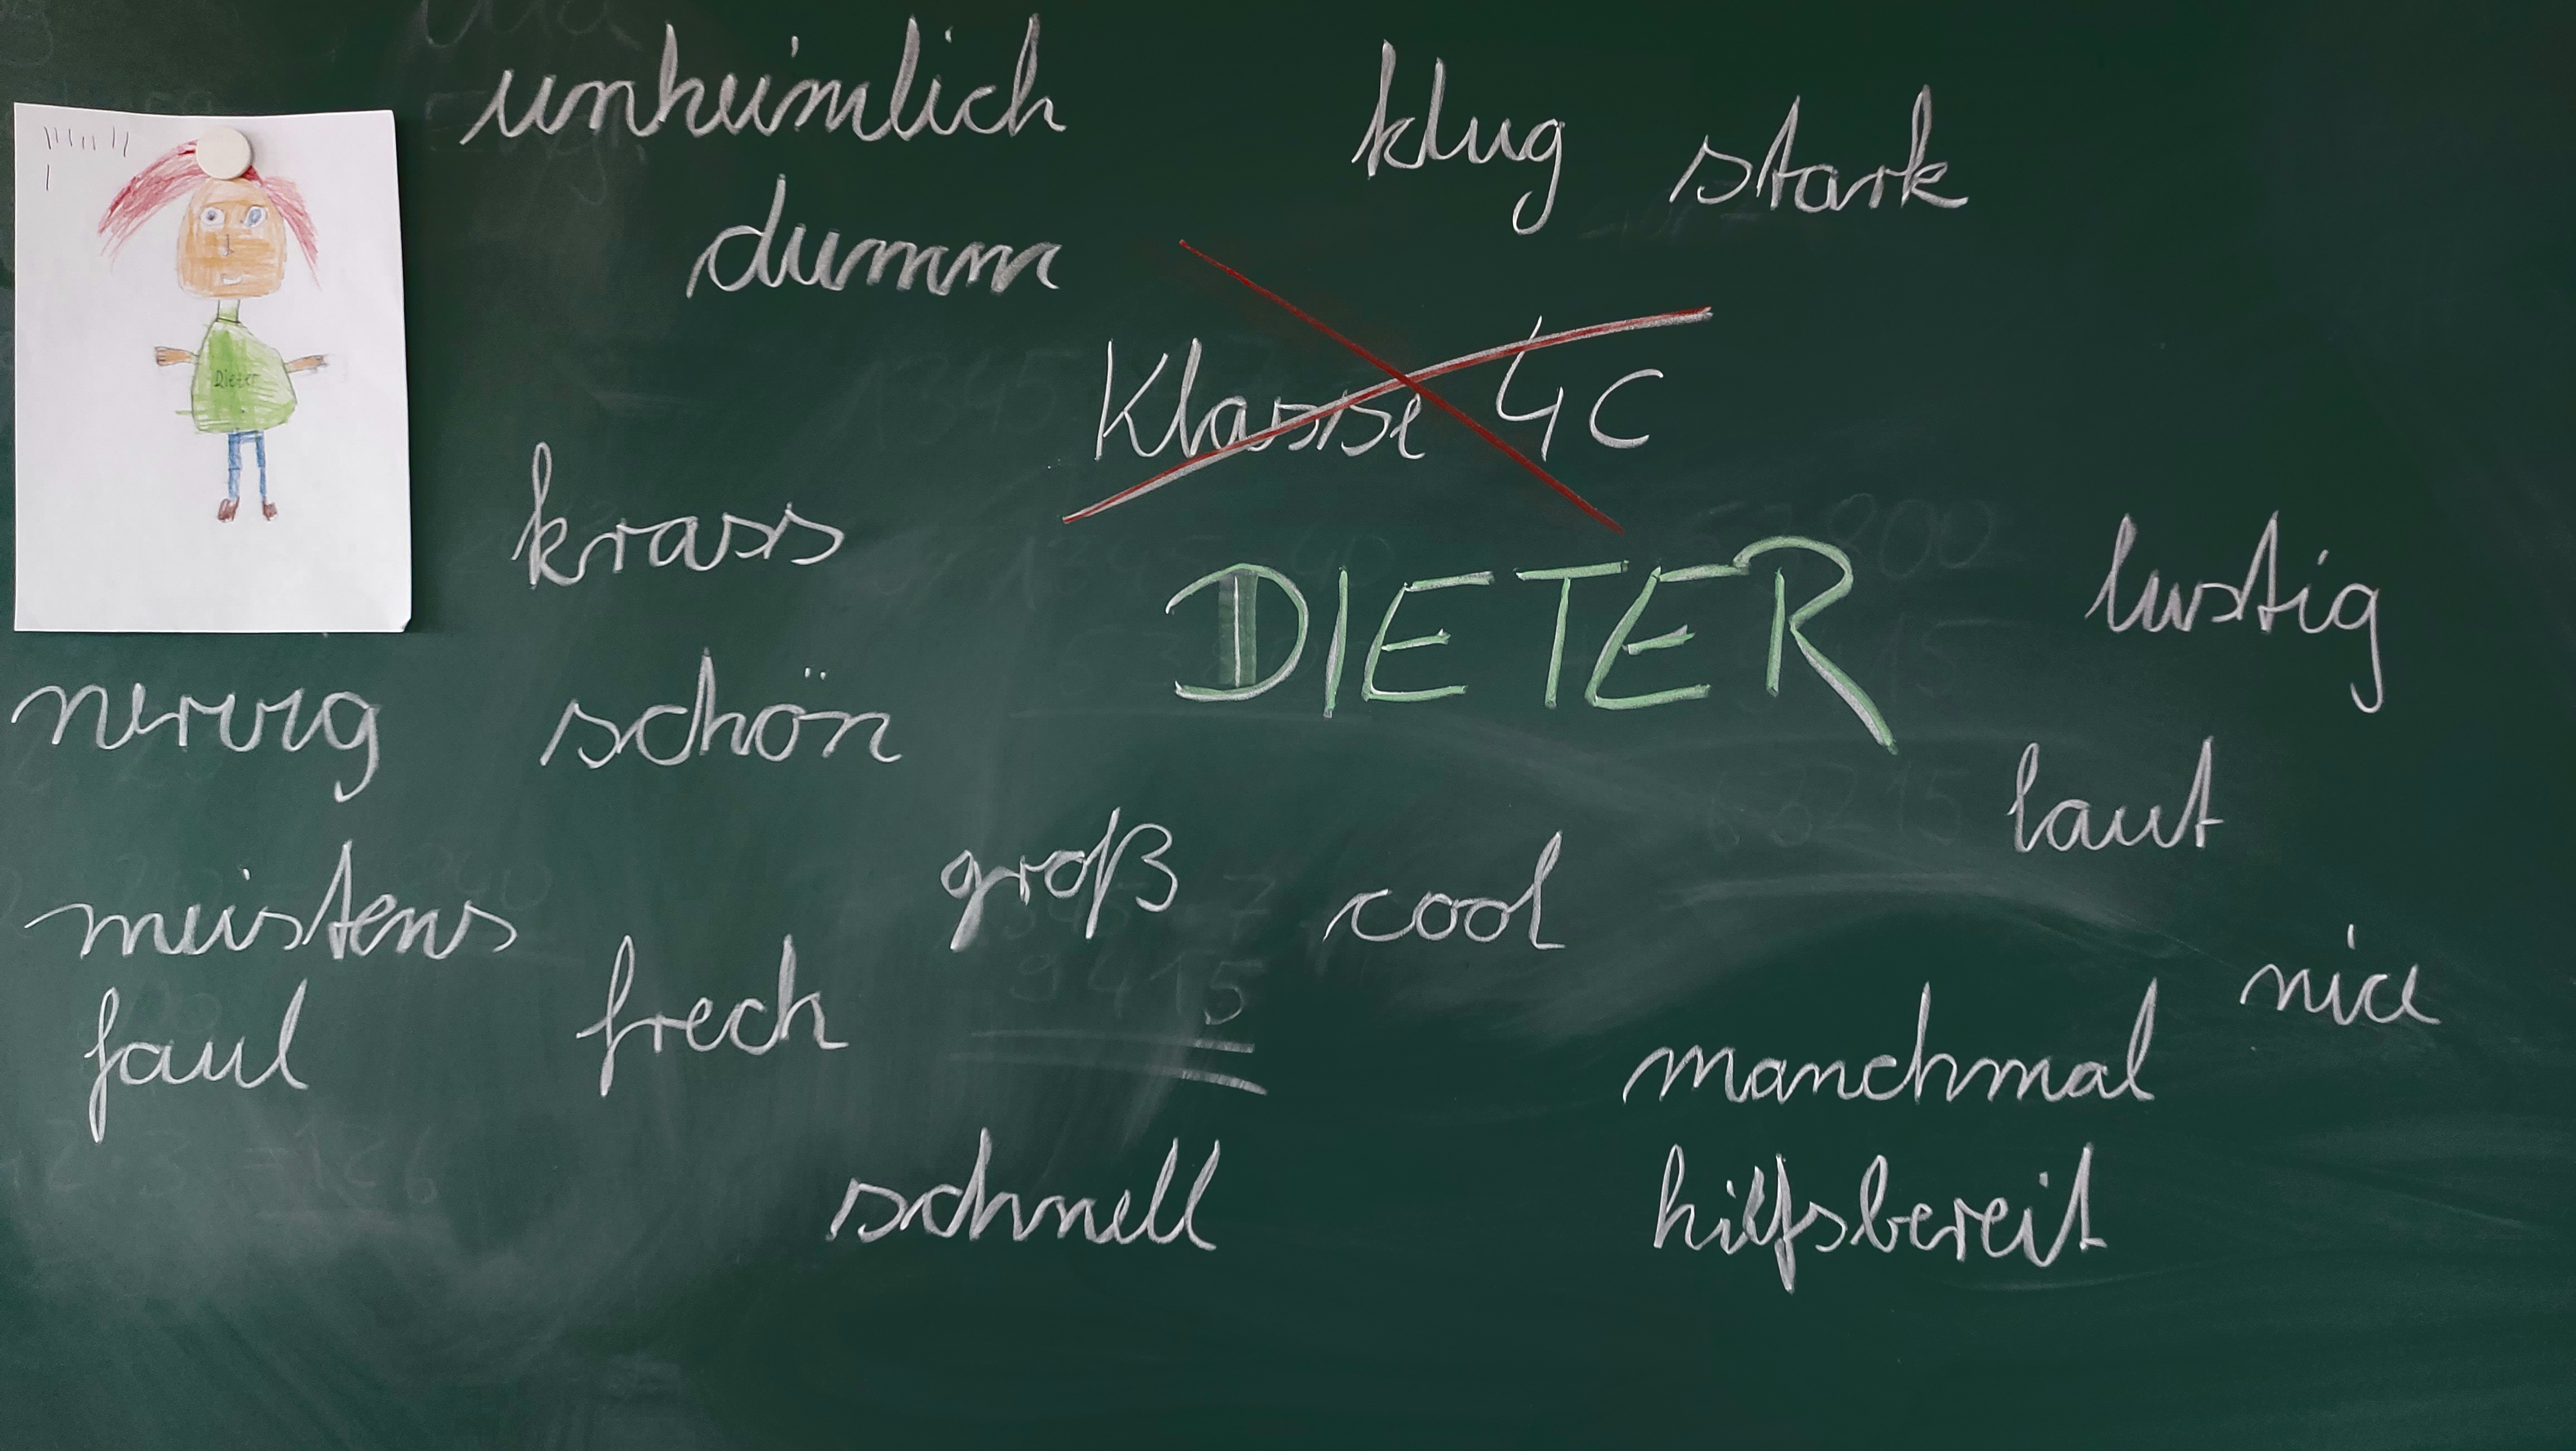 unheimlich
dumm
klug
stark
Klasse 4c
Dieter
krass
DIETER
lustig
nervig
schön
laut
meistens
faul
groß
cool
frech
nice
manchmal
hilfsbereit
schnell